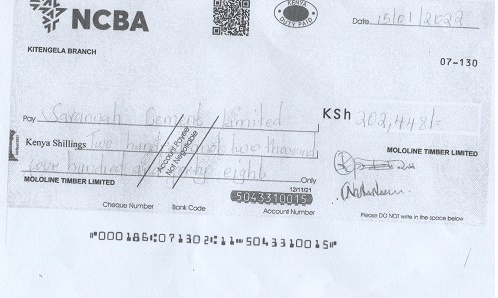 NCBA
KENYA
DUTY PAID
Date 15/01/2022
KITENGELA BRANCH
07-130
Pay Savannah Cement Limited
KSh 202,448/=
Kenya Shillings Two hundred and two thousand
four hundred and forty eight Only
Account Payee
Not Negotiable
MOLOLINE TIMBER LIMITED
MOLOLINE TIMBER LIMITED
12/11/21
5043310015
Cheque Number Bank Code Account Number
Please DO NOT write in the space below
⑈000186⑆071302⑆11⑉5043310015⑈